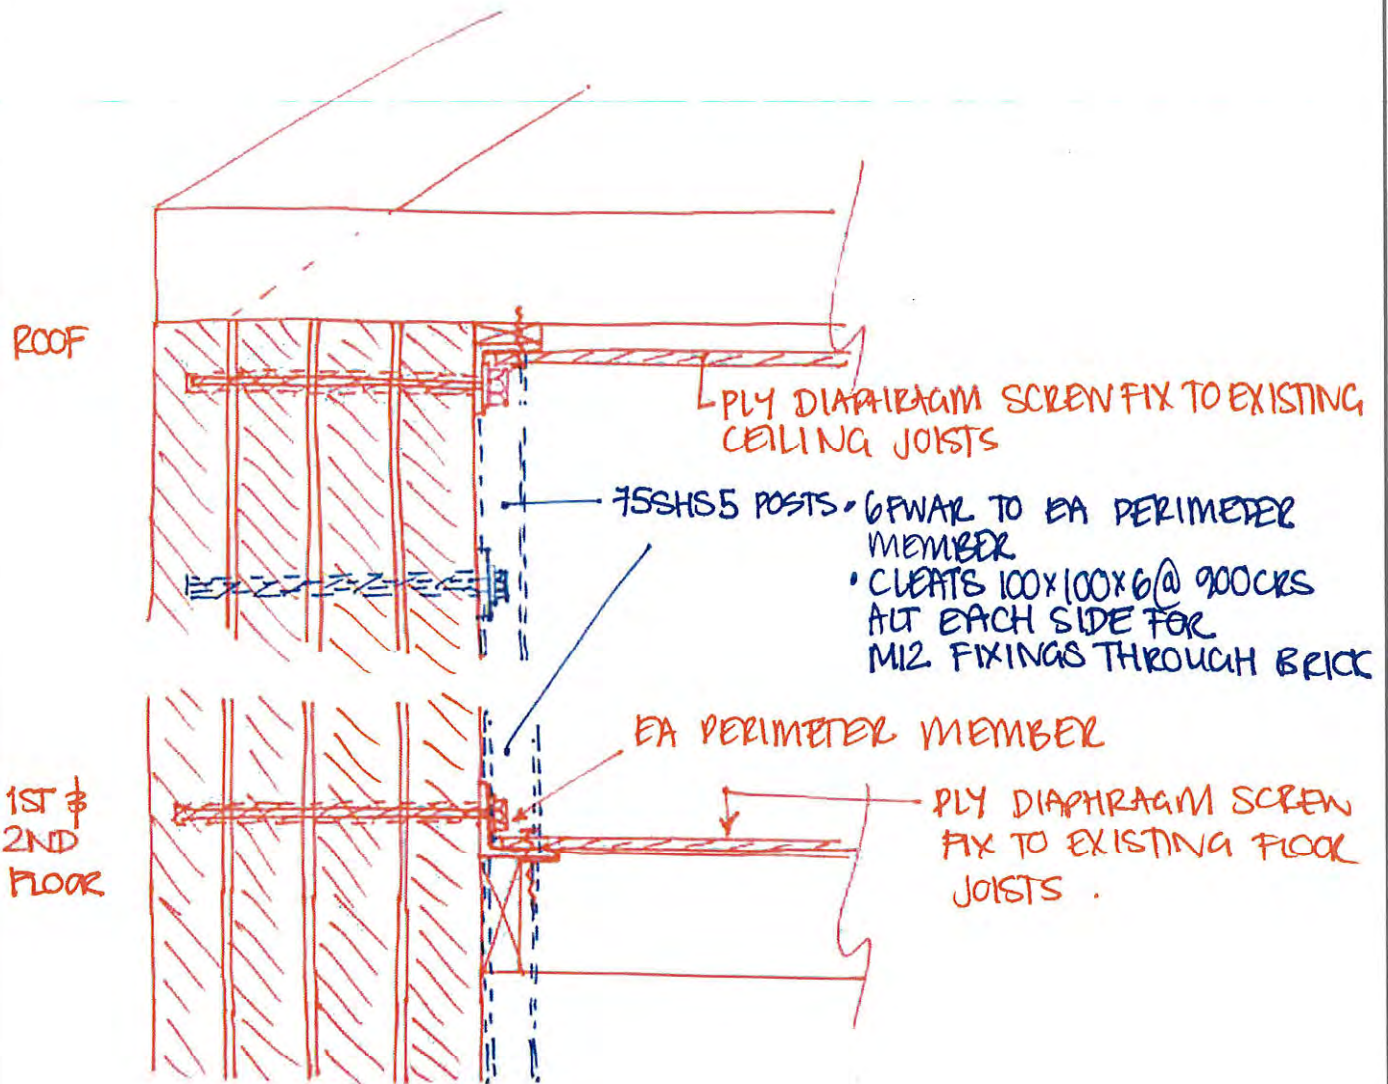 ROOF
PLY DIAPHRAGM SCREW FIX TO EXISTING
CEILING JOISTS
75SHS5 POSTS • 6FWAR TO EA PERIMETER
MEMBER
• CLEATS 100x100x6@ 900CRS
ALT EACH SIDE FOR
M12 FIXINGS THROUGH BRICK
EA PERIMETER MEMBER
1ST &
2ND
FLOOR
PLY DIAPHRAGM SCREW
FIX TO EXISTING FLOOR
JOISTS .